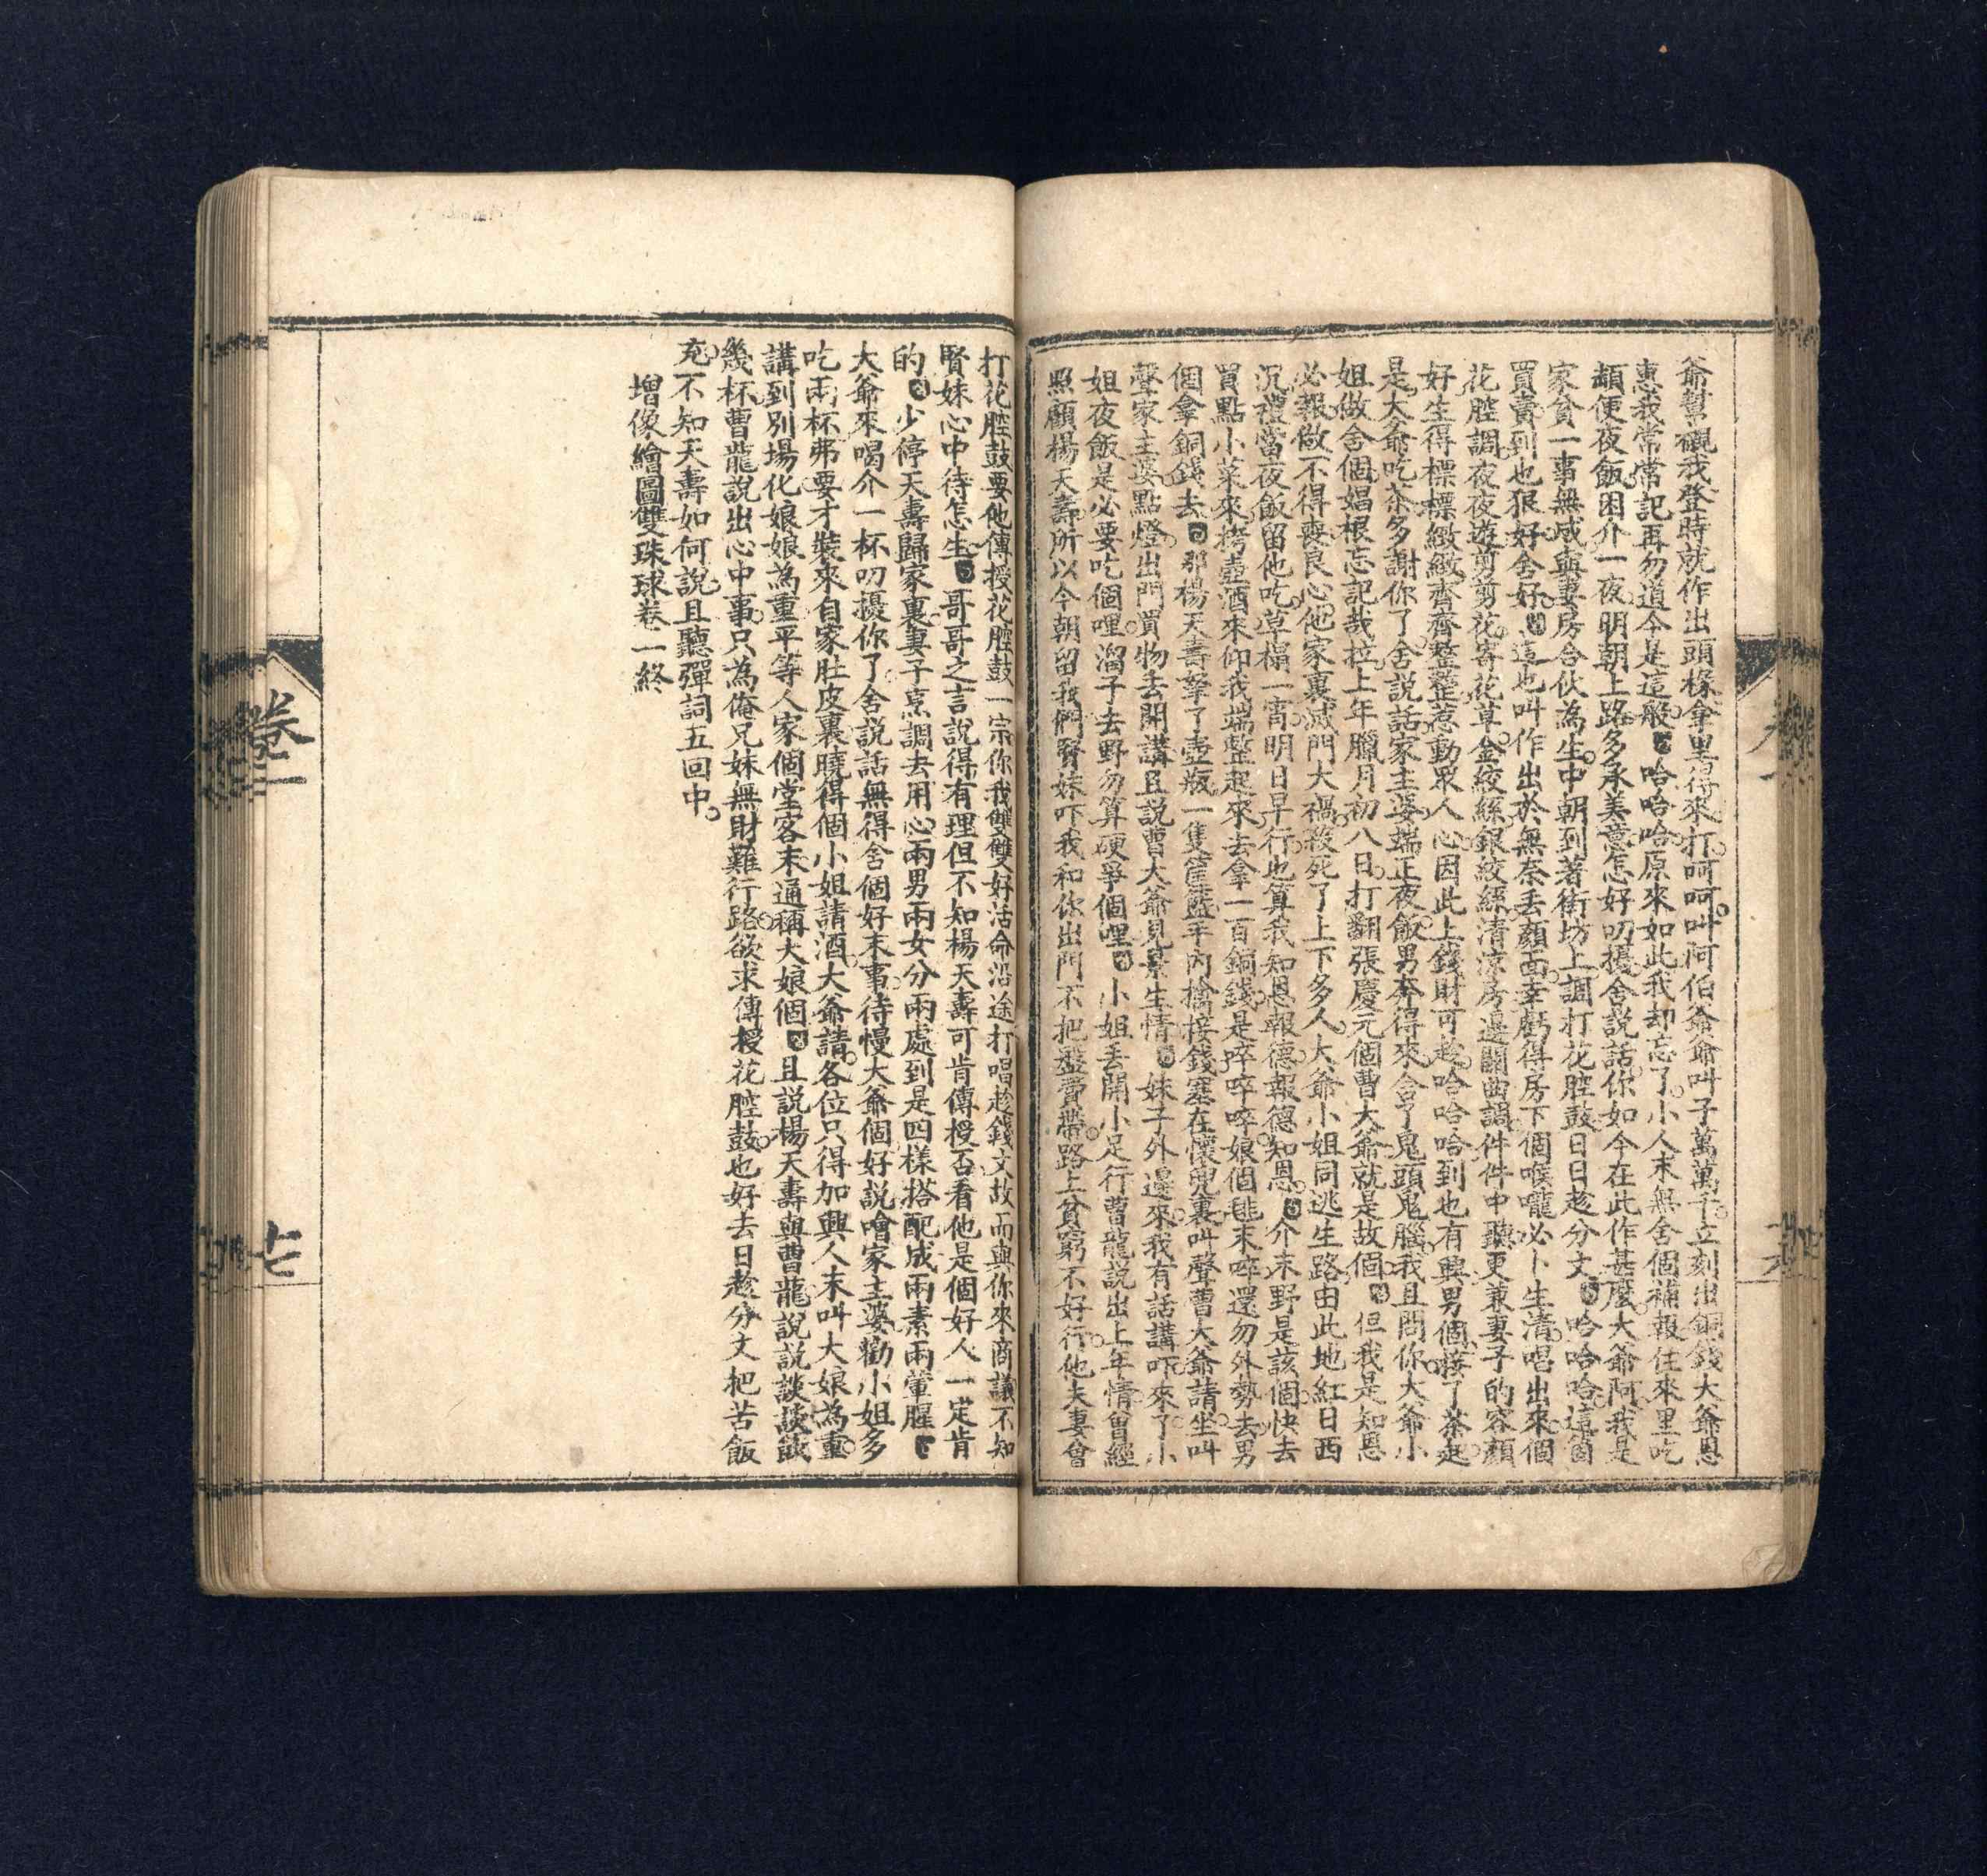 爺幫襯我登時就作出頭椽拿里得來打呵呵叫阿伯爺爺叫子萬萬千立刻出銅錢大爺恩
惠我常常記再勿道今是這般哈哈哈原來如此我却忘了小人末無舍個補報住來里吃
頓便夜飯困介一夜明朝上路多承美意怎好叨擾舍説話你如今在此作甚麽大爺阿我是
家貧一事無成與妻房合伙為生中朝到著街坊上調打花腔鼓日日趁分文哈哈哈這箇
買賣到也狠好舍好這也叫作出於無奈丢顏面幸虧得房下個喉嚨必卜生清唱出來個
花腔調夜夜遊剪剪花寄花草金絞絲銀絞絲清凉房邊關曲調件件中聽更兼妻子的容顏
好生得標標緻緻齊齊整整惹動衆人心因此上錢財可趁哈哈哈到也有興男個接了茶起
是大爺吃茶多謝你了舍説話家主婆端正夜飯男奔得來合亨鬼頭鬼腦我且問你大爺小
姐做舍個娼根忘記哉拉上年臘月初八日打翻張慶元個曹大爺就是故個但我是知恩
必報做不得喪良心他家裏滅門大禍殺死了上下多人大爺小姐同逃生路由此地紅日西
沉禮當夜飯留他吃草榻一宵明日早行也算我知恩報德報德知恩介末野是該個快去
買點小菜來拷壺酒來仰我端整起來去拿一百銅錢是啐啐啐娘個毴末啐還勿外勢去男
個拿銅錢去那楊天壽拏了壺瓶一隻筐籃平内擒接錢塞在懷兜裏叫聲曹大爺請坐叫
聲家主婆點燈出門買物去開講且説曹大爺見景生情妹子外邊來我有話講吓來了小
姐夜飯是必要吃個哩溜子去野勿算硬爭個哩小姐丢開小足行曹龍説出上年情曾經
照顧楊天壽所以今朝留我們賢妹吓我和你出門不把盤費帶路上貧窮不好行他夫妻會
打花腔鼓要他傳授花腔鼓一宗你我雙雙好活命沿途打唱趁錢文故而與你來商議不知
賢妹心中待怎生哥哥之言説得有理但不知楊天壽可肯傳授否看他是個好人一定肯
的少停天壽歸家裏妻子烹調去用心兩男兩女分兩處到是四樣搭配成兩素兩葷腥
大爺來喝介一杯叨擾你了舍説話無得舍個好末事待慢大爺個好説噲家主婆勸小姐多
吃兩杯弗要才裝來自家肚皮裏曉得個小姐請酒大爺請各位只得加興人末叫大娘為重
講到別場化娘娘為重平等人家個堂客末通稱大娘個且説楊天壽與曹龍説説談談飲
幾杯曹龍説出心中事只為俺兄妹無財難行路欲求傳授花腔鼓也好去日趁分文把苦飯
充不知天壽如何說且聽彈詞五回中
增像繪圖雙珠球卷一終
卷一
七